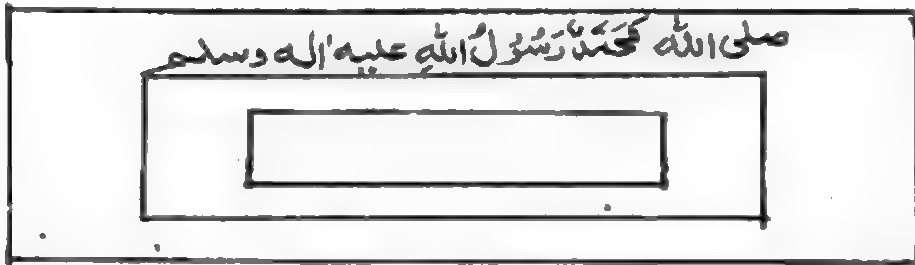 صلى الله مُحَمَّدٌ رَسُوْلُ اللهِ عليه اله وسلم